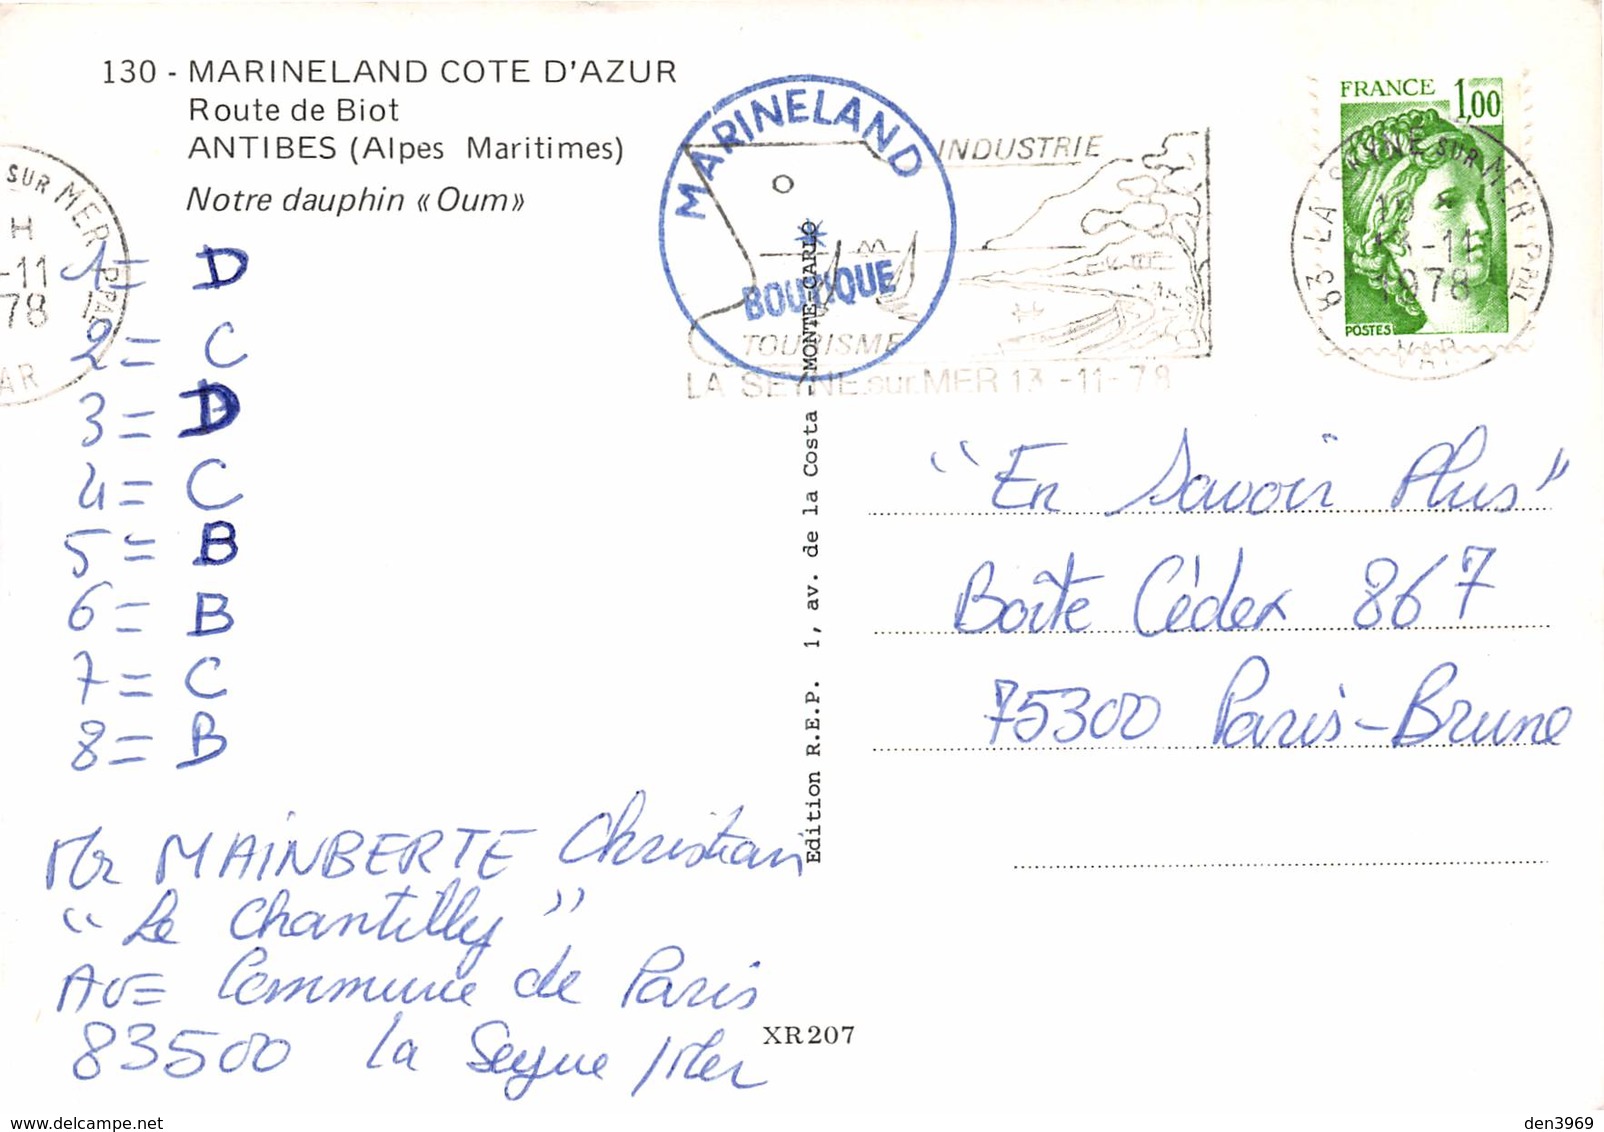 130 - MARINELAND COTE D'AZUR
Route de Biot
ANTIBES (Alpes Maritimes)
Notre dauphin « Oum »
SUR MER PPAL
H
-11
78
AR
MARINELAND
BOUTIQUE
INDUSTRIE
TOURISME
LA SEYNE sur MER 13-11-78
FRANCE 1,00
POSTES
83 LA SEYNE SUR MER PPAL
13-11
1978
VAR
1= D
2= C
3= D
4= C
5= B
6= B
7= C
8= B
Mr MAINBERTE Christian
"Le Chantilly"
AVE Commune de Paris
83500 la Seyne / Mer
Edition R.E.P. 1, av. de la Costa - MONTE-CARLO
XR207
"En Savoir Plus"
Boîte Cédex 867
75300 Paris-Brune
https://www.delcampe.net
den3969